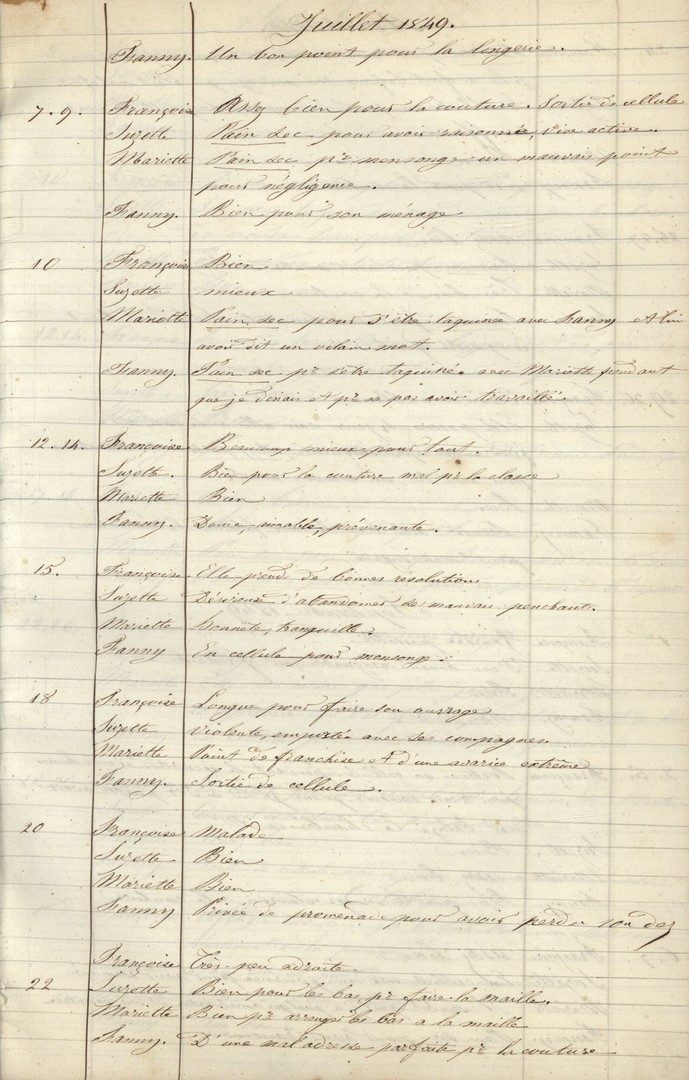 Juillet 1849.
Fanny. Un bon point pour la lingerie.
7. 9. Françoise Assez bien pour la couture. Sortie de cellule
Suzette Pain sec pour avoir raisonné, vive active.
Mariette Pain sec pr mensonge un mauvais point
pour négligence.
Fanny. Bien pour son ménage
10 Françoise Bien
Suzette mieux
Mariette Pain sec pour s'être taquinée avec Fanny et lui
avoir dit un vilain mot.
Fanny. Pain sec pr s'être taquinée avec Mariette pendant
que je dinais et pr ne pas avoir travaillé.
12. 14. Françoise Beaucoup mieux pour tout.
Suzette. Bien pour la couture mal pr la classe
Mariette Bien
Fanny. Douce, aimable, prévenante.
15. Françoise Elle prend de bonnes résolutions
Suzette Désireuse d'abandonner se mauvais penchant.
Mariette honnête, tranquille.
Fanny En cellule pour mensonge.
18 Françoise Longue pour faire son ouvrage
Suzette violente, emportée avec ses compagnes.
Mariette Point de franchise et d'une avarice extrême
Fanny. Sortie de cellule.
20 Françoise Malade
Suzette Bien
Mariette Bien
Fanny Privée de promenade pour avoir perdu son dez
Françoise Très peu adroite.
22 Suzette Bien pour les bas, pr faire la maille.
Mariette Bien pr arranger les bas a la maille
Fanny. D'une mal adresse parfaite pr la couture